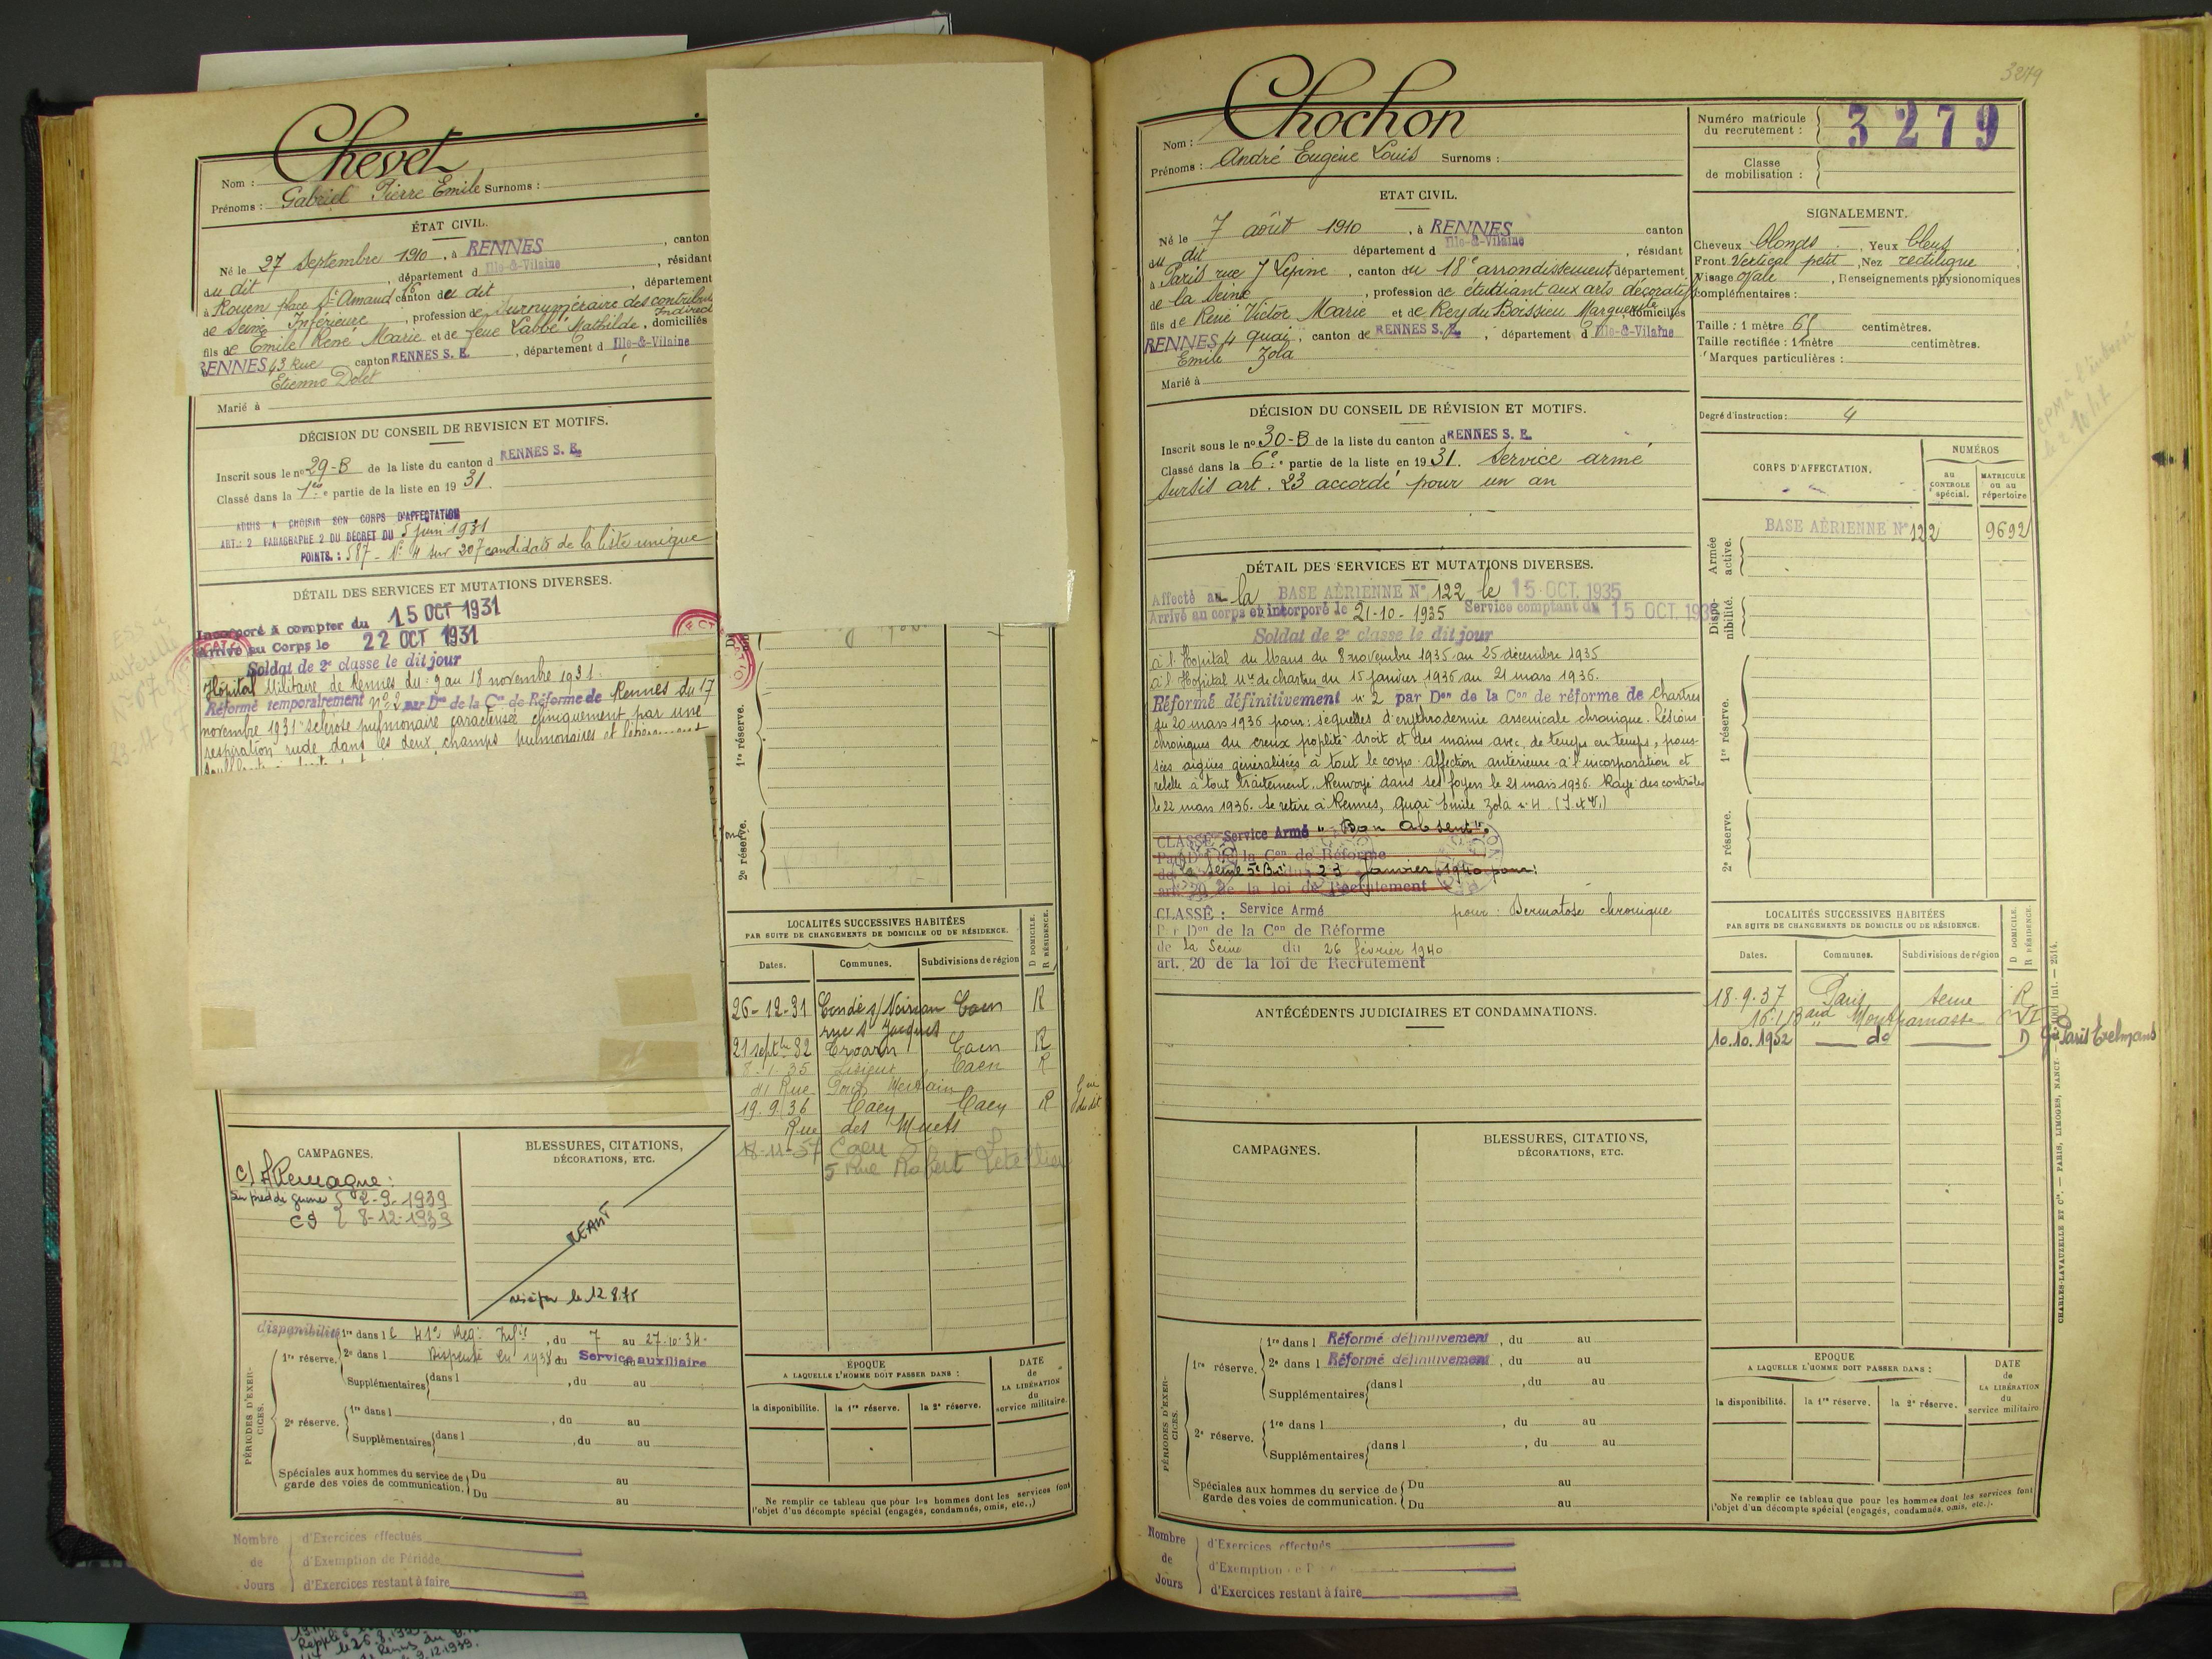 Chevet
Nom :
Prénoms : Gabriel Pierre Emile Surnoms :
ÉTAT CIVIL.
Né le 27 Septembre 1910, à RENNES, canton
du dit, département d Ille-&-Vilaine, résidant
à Rouen place St Amand 16 canton du dit, département
de Seine Inférieure, profession de Surnuméraire des contribu
Indirect
fils de Emile René Marie et de feue Labbé Mathilde, domiciliés
RENNES 43 Rue canton RENNES S. E., département d Ille-&-Vilaine
Etienne Dolet
Marié à
DÉCISION DU CONSEIL DE REVISION ET MOTIFS.
Inscrit sous le no 29-B de la liste du canton d RENNES S. E.
Classé dans la 1re partie de la liste en 1931.
ADMIS A CHOISIR SON CORPS D'AFFECTATION
ART.: 2 PARAGRAPHE 2 DU DÉCRET DU 5 juin 1931
POINTS. : 587 - No 4 sur 207 candidats de la liste unique
DÉTAIL DES SERVICES ET MUTATIONS DIVERSES.
Incorporé à compter du 15 OCT 1931
Arrivé au Corps le 22 OCT 1931
Soldat de 2e classe le dit jour
Hôpital Militaire de Rennes du : 9 au 18 novembre 1931.
Réformé temporairement No 2 par Don de la Con de Réforme de Rennes du 17
novembre 1931 "sclérose pulmonaire caractérisée cliniquement par une
respiration rude dans les deux champs pulmonaires et légèrement
1re réserve.
2e réserve.
LOCALITÉS SUCCESSIVES HABITÉES
PAR SUITE DE CHANGEMENTS DE DOMICILE OU DE RÉSIDENCE.
D DOMICILE.
R RÉSIDENCE.
Dates. Communes. Subdivisions de région
26-12-31 Condé s/ Noireau Caen R
rue St Jacques
21 septbre 32 Troarn Caen R
8-1-35 Lisieux Caen R
41 Rue Pont Mortain
19.9.36 Caen Caen R
Rue des Muets
18-11-57 Caen
5 Rue Robert Letellier
CAMPAGNES.
C/ Allemagne :
2-9-1939
CS 8-12-1939
BLESSURES, CITATIONS,
DÉCORATIONS, ETC.
NÉANT
le 12.8.75
PÉRIODES D'EXERCICES.
disponibilité 1re dans le 41e Reg. Infie, du 7 au 27-10-34-
1re réserve. 2e dans l Dispensé en 1938 du Service auxiliaire au
Supplémentaires dans l , du au
2e réserve. 1re dans l , du au
Supplémentaires dans l , du au
Spéciales aux hommes du service de garde des voies de communication. Du au
Du au
ÉPOQUE
A LAQUELLE L'HOMME DOIT PASSER DANS :
la disponibilité. la 1re réserve. la 2e réserve.
DATE
de
LA LIBÉRATION
du
service militaire.
Ne remplir ce tableau que pour les hommes dont les services font
l'objet d'un décompte spécial (engagés, condamnés, omis, etc..)
Nombre de Jours
d'Exercices effectués
d'Exemption de Période
d'Exercices restant à faire
Chochon
Nom :
Prénoms : André Eugène Louis Surnoms :
3279
Numéro matricule
du recrutement : 3279
Classe
de mobilisation :
ETAT CIVIL.
Né le 7 août 1910, à RENNES canton
du dit département d Ille-&-Vilaine, résidant
à Paris rue J Lépine, canton du 18e arrondissement, département
de la Seine, profession de étudiant aux arts décoratifs
fils de René Victor Marie et de Rey du Boissieu Marguerite, domiciliés
RENNES 4 quai, canton de RENNES S.E., département d Ille-&-Vilaine
Emile Zola
Marié à
SIGNALEMENT.
Cheveux blonds. Yeux bleus
Front Vertical petit, Nez rectiligne
Visage ovale, Renseignements physionomiques
complémentaires :
Taille : 1 mètre 65 centimètres.
Taille rectifiée : 1 mètre centimètres.
Marques particulières :
Degré d'instruction : 4
DÉCISION DU CONSEIL DE RÉVISION ET MOTIFS.
Inscrit sous le no 30-B de la liste du canton d RENNES S. E.
Classé dans la 6e partie de la liste en 1931. Service armé
Sursis art. 23 accordé pour un an
CORPS D'AFFECTATION.
NUMÉROS
au CONTROLE spécial.
MATRICULE ou au répertoire
Armée active.
BASE AÉRIENNE No 122 9692
Disponibilité.
1re réserve.
2e réserve.
DÉTAIL DES SERVICES ET MUTATIONS DIVERSES.
Affecté au la BASE AÉRIENNE No 122 le 15 OCT. 1935
Arrivé au corps et incorporé le 21-10-1935 Service comptant du 15 OCT. 1935
Soldat de 2e classe le dit jour
à l'Hopital du Mans du 8 novembre 1935 au 25 décembre 1935
à l'Hopital Mre de Chartres du 15 janvier 1936 au 21 mars 1936.
Réformé définitivement no 2 par Don de la Con de réforme de Chartres
du 20 mars 1936 pour : séquelles d'erythrodermie arsenicale chronique. Lésions
chroniques du creux poplité droit et des mains avec, de temps en temps, pous-
sées aigües généralisées à tout le corps. affection antérieure à l'incorporation et
rebelle à tout traitement. Renvoyé dans ses foyers le 21 mars 1936. Rayé des contrôles
le 22 mars 1936. Se retire à Rennes, Quai Emile Zola no 4 (I & V.)
CLASSÉ Service Armé "Bon Absent"
Par Don de la Con de Réforme
de la Seine 5e Bau du 23 janvier 1940 pour :
art. 20 de la loi de Recrutement
CLASSÉ : Service Armé pour : Dermatose chronique
Par Don de la Con de Réforme
de La Seine du 26 février 1940
art. 20 de la loi de Recrutement
LOCALITÉS SUCCESSIVES HABITÉES
PAR SUITE DE CHANGEMENTS DE DOMICILE OU DE RÉSIDENCE.
D DOMICILE.
R RÉSIDENCE.
Dates. Communes. Subdivisions de région
18.9.37 Paris Seine R
161 Bard Montparnasse (VI
10.10.1952 do D
ANTÉCÉDENTS JUDICIAIRES ET CONDAMNATIONS.
CAMPAGNES.
BLESSURES, CITATIONS,
DÉCORATIONS, ETC.
PÉRIODES D'EXERCICES.
1re réserve. 1re dans l Réformé définitivement, du au
2e dans l Réformé définitivement, du au
Supplémentaires dans l , du au
2e réserve. 1re dans l , du au
Supplémentaires dans l , du au
Spéciales aux hommes du service de garde des voies de communication. Du au
Du au
EPOQUE
A LAQUELLE L'HOMME DOIT PASSER DANS :
la disponibilité. la 1re réserve. la 2e réserve.
DATE
de
LA LIBÉRATION
du
service militaire
Ne remplir ce tableau que pour les hommes dont les services font
l'objet d'un décompte spécial (engagés, condamnés, omis, etc.).
CHARLES-LAVAUZELLE ET Cie. — PARIS, LIMOGES, NANCY.
Nombre de Jours
d'Exercices effectués
d'Exemption de P
d'Exercices restant à faire